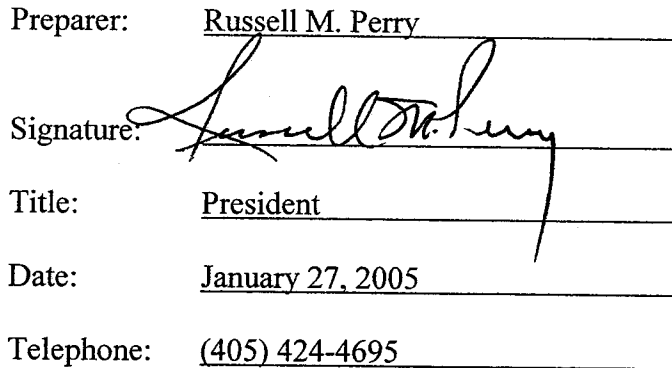 Preparer: Russell M. Perry
Signature: Russell M. Perry
Title: President
Date: January 27, 2005
Telephone: (405) 424-4695